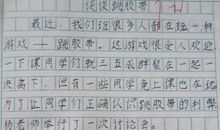 谈谈跳胶带
最近，我们班很多人都在玩一种
游戏——跳胶带。这游戏很受人欢迎
一下课同学们就三五成群聚在一起
决高下，但有一些同学竟上课也在玩
为了让同学们正确认识跳胶带的利弊
杨老师举行了一次讨论会。